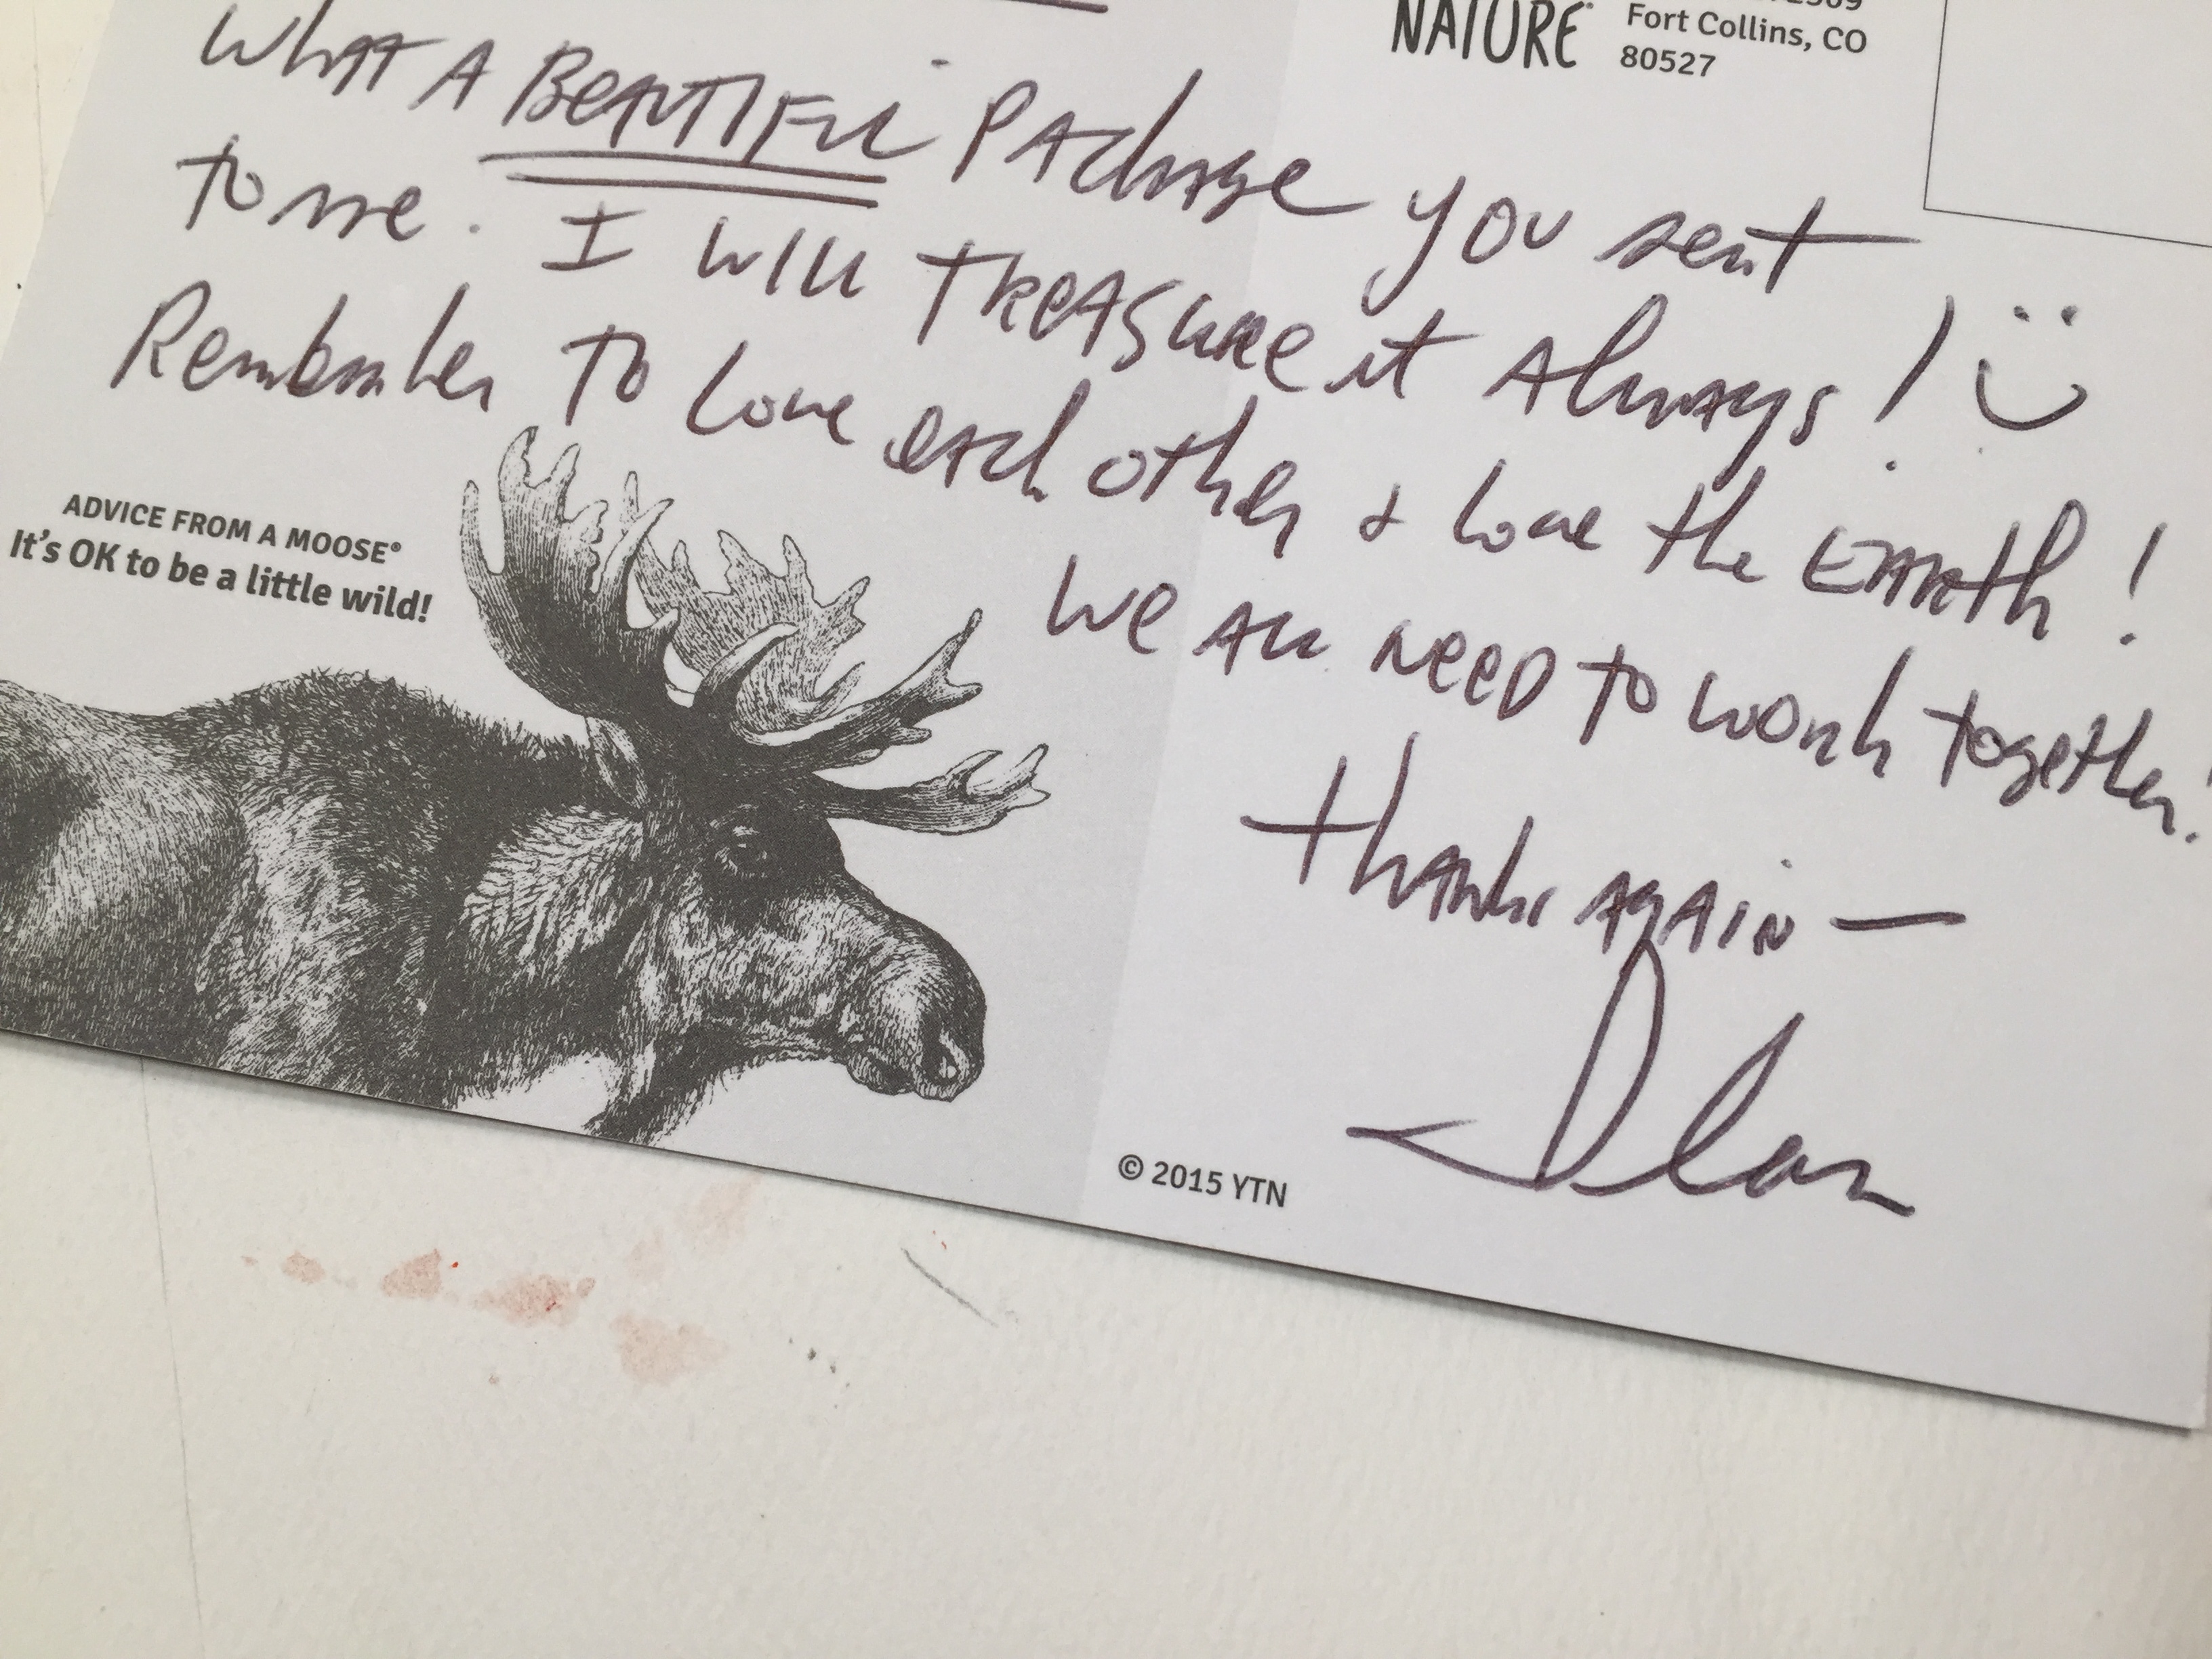 NATURE
Fort Collins, CO
80527
What A Beautiful Package you sent
to me. I will treasure it always!
Remember to love each other & love the Earth!
We all need to work together!
Thanks again —
ADVICE FROM A MOOSE®
It's OK to be a little wild!
© 2015 YTN